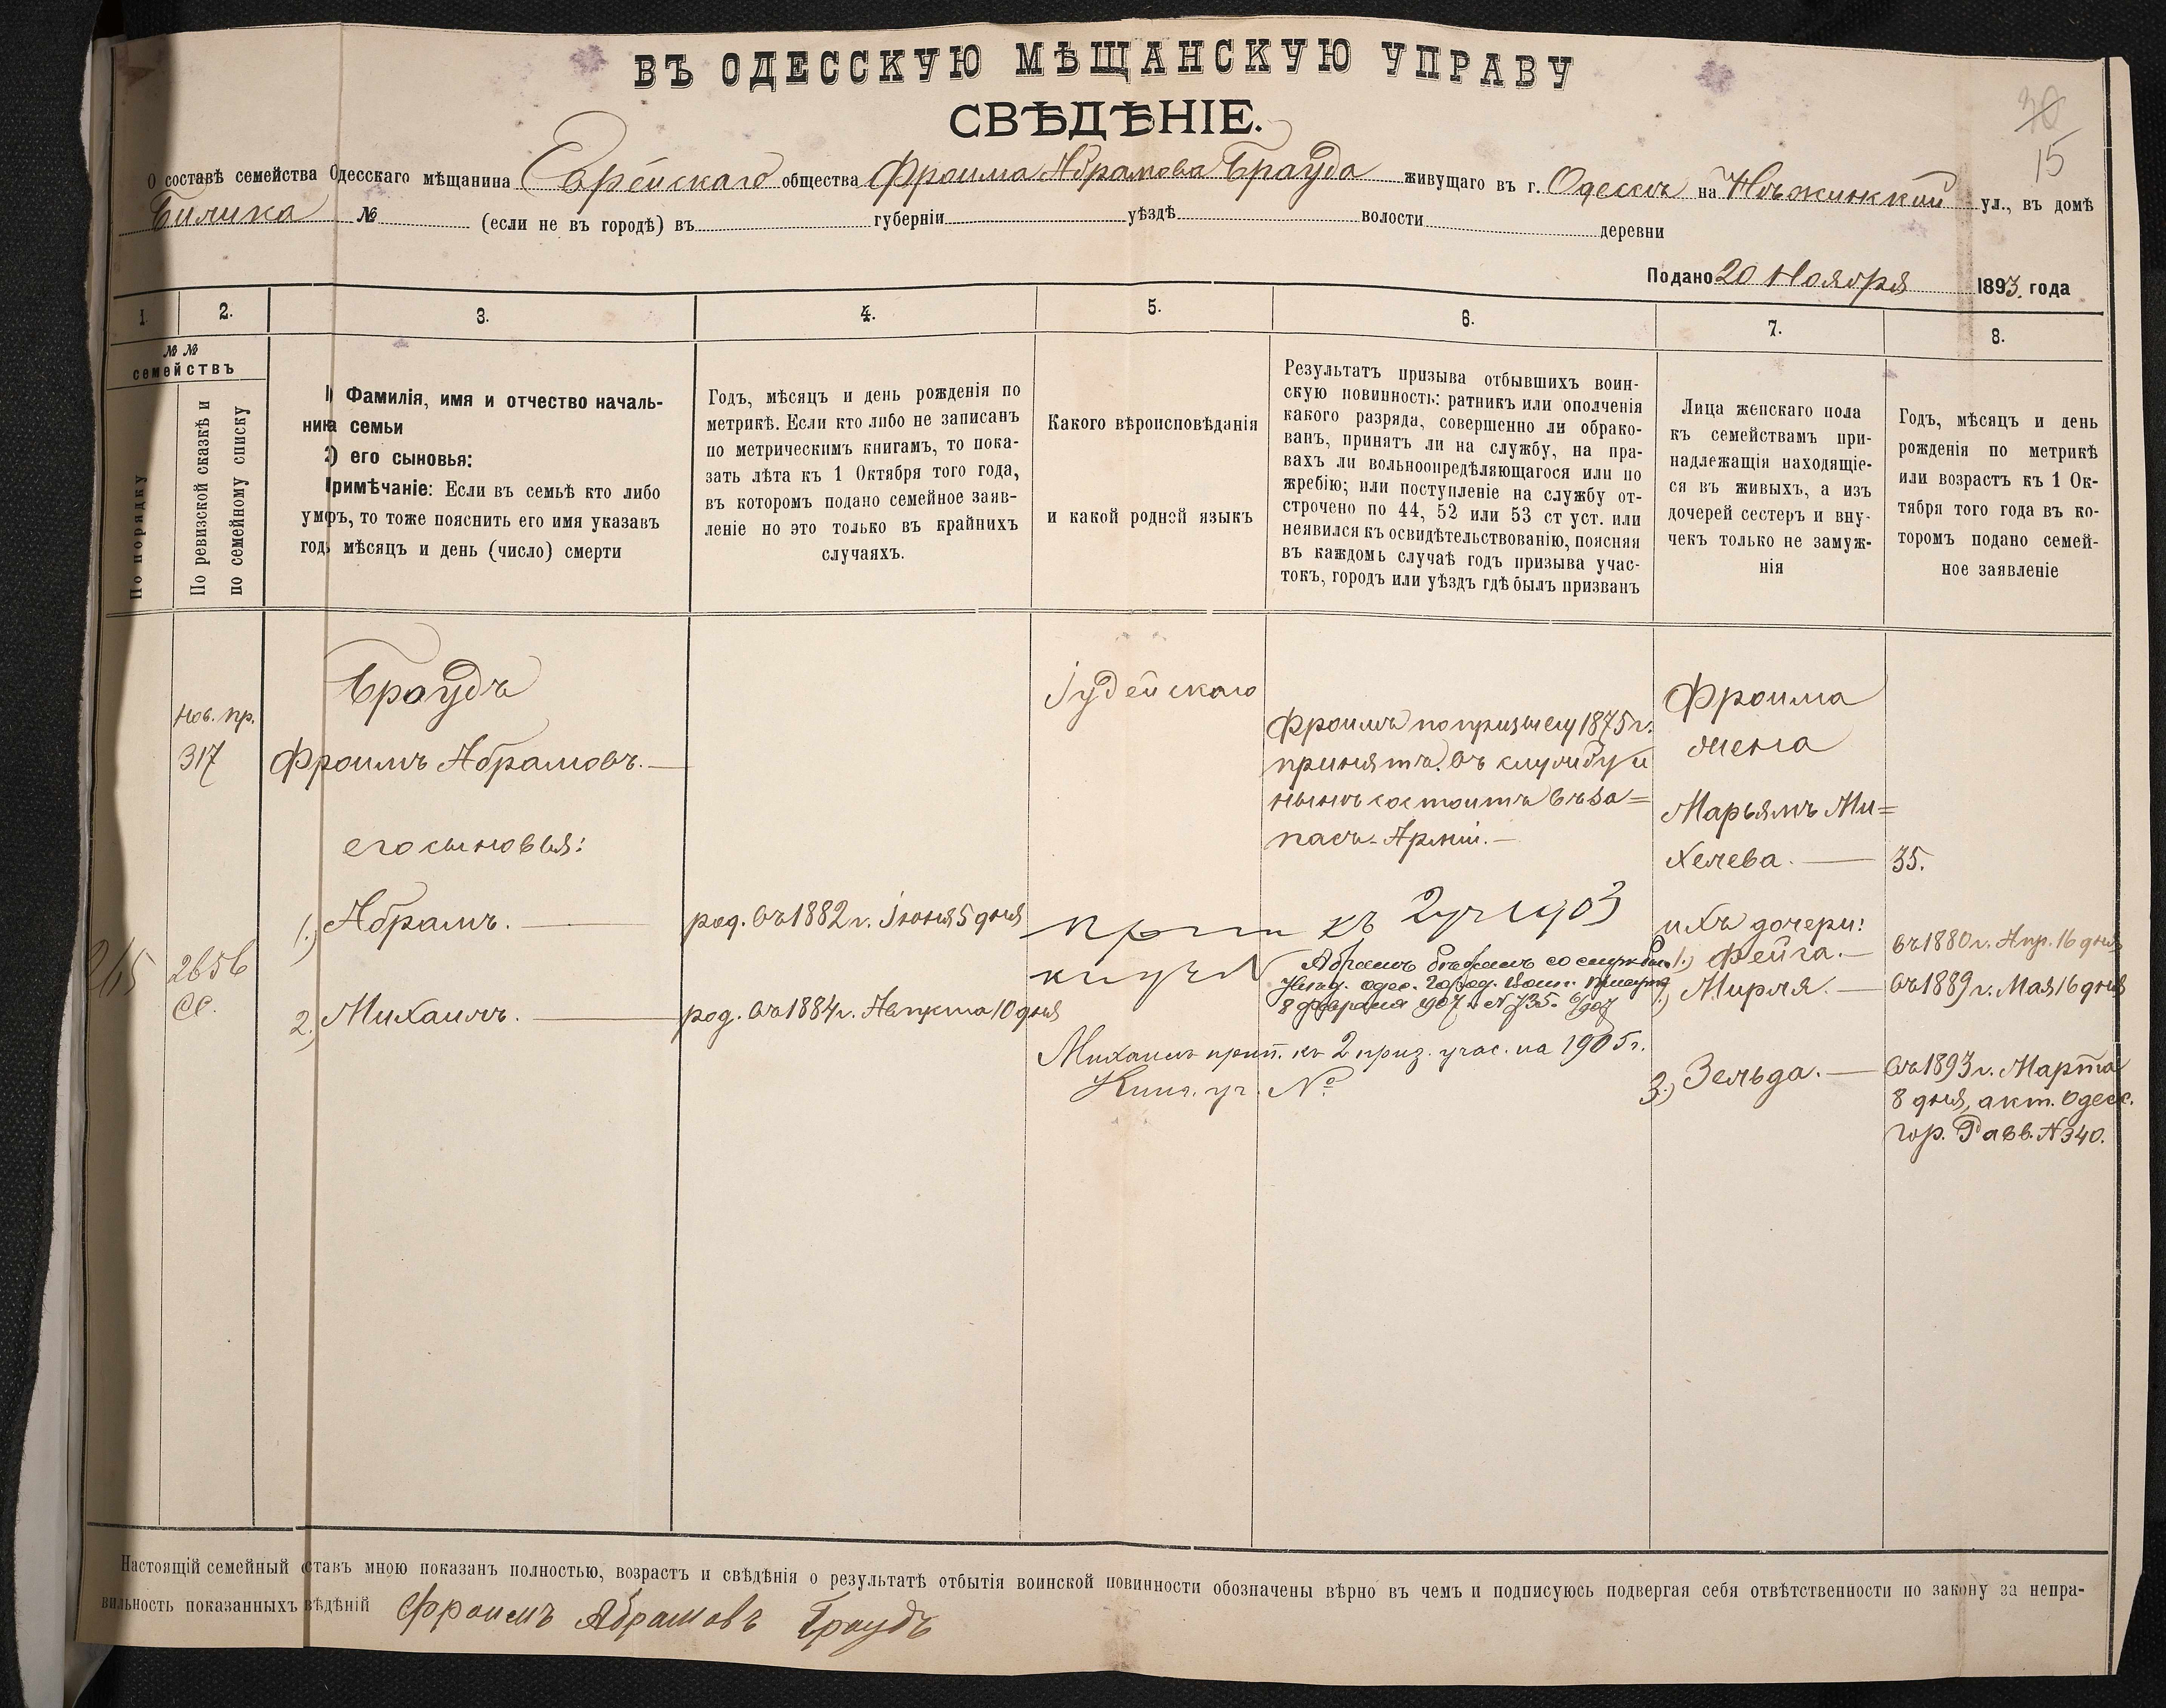 ВЪ ОДЕССКУЮ МѢЩАНСКУЮ УПРАВУ
СВѢДѢНІЕ.
30
15
О составѣ семейства Одесскаго мѣщанина Еврейскаго общества Фроима Абрамова Брауда живущаго въ г. Одессѣ на Нѣжинской ул., въ домѣ
Билика № (если не въ городѣ) въ губерніи уѣздѣ волости деревни
Подано 20 Ноября 1893. года
1.
2.
3.
4.
5.
6.
7.
8.
№ №
семействъ
По порядку
По ревизской сказкѣ и
по семейному списку
1) Фамилія, имя и отчество началь-
ника семьи
2) его сыновья:
Примѣчаніе: Если въ семьѣ кто либо
умеръ, то тоже пояснить его имя указавъ
годъ мѣсяцъ и день (число) смерти
Годъ, мѣсяцъ и день рожденія по
метрикѣ. Если кто либо не записанъ
по метрическимъ книгамъ, то пока-
зать лѣта къ 1 Октября того года,
въ которомъ подано семейное заяв-
леніе но это только въ крайнихъ
случаяхъ.
Какого вѣроисповѣданія
и какой родной языкъ
Результатъ призыва отбывшихъ воин-
скую повинность: ратникъ или ополченія
какого разряда, совершенно ли обрако-
ванъ, принятъ ли на службу, на пра-
вахъ ли вольноопредѣляющагося или по
жребію; или поступленіе на службу от-
строчено по 44, 52 или 53 ст уст. или
неявился къ освидѣтельствованію, поясняя
въ каждомъ случаѣ годъ призыва учас-
токъ, городъ или уѣздъ гдѣ былъ призванъ
Лица женскаго пола
къ семействамъ при-
надлежащія находящіе-
ся въ живыхъ, а изъ
дочерей сестеръ и вну-
чекъ только не замуж-
нія
Годъ, мѣсяцъ и день
рожденія по метрикѣ
или возрастъ къ 1 Ок-
тября того года въ ко-
торомъ подано семей-
ное заявленіе
265
Нов. пр.
317
2656
СС.
Браудъ
Фроимъ Абрамовъ.—
его сыновья:
1.) Абрамъ. —
2.) Михаилъ. —
род. въ 1882 г. Іюня 5 дня
род. въ 1884 г. Августа 10 дня
Іудейскаго
Фроимъ по призыву 1875 г.
принятъ въ службу и
нынѣ состоитъ въ За=
пасѣ Арміи.—
къ 2 уч 1903
Абрамъ со службы
Одес. Город. Воин.
8 февраля 1907 г. № 735. 6/907
Михаилъ прип. къ 2 приз. учас. на 1905 г.
№
Фроима
жена
Марьямъ Ми=
хелева. —
ихъ дочери:
1.) Фейга.—
2.) Мирля. —
3.) Зельда. —
35.
въ 1880 г. Апр. 16 дня
въ 1889 г. Мая 16 дня
въ 1893 г. Марта
8 дня, акт. Одесс.
Гор. Равв. № 340.
Настоящій семейный составъ мною показанъ полностью, возрастъ и свѣдѣнія о результатѣ отбытія воинской повинности обозначены вѣрно въ чемъ и подписуюсь подвергая себя отвѣтственности по закону за непра-
вильность показанныхъ свѣдѣній Фроимъ Абрамовъ Браудъ